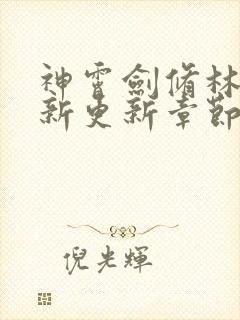 神霄劍脩林
新更新章節
倪光輝